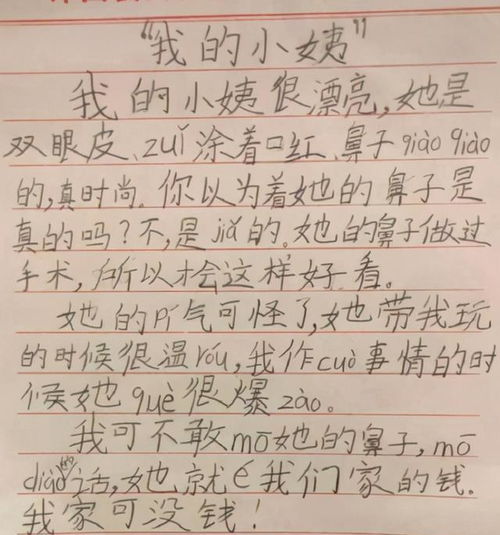 “我的小姨”
我的小姨很漂亮,她是
双眼皮、zuǐ涂着口红、鼻子qiào qiào
的,真时尚。你以为着她的鼻子是
真的吗?不,是jiǎ的。她的鼻子做过
手术,所以才会这样好看。
她的pí气可怪了,她带我玩
的时候很温róu,我作cuò事情的时
候她què很爆zào。
我可不敢mō她的鼻子,mō
diào话,她就é我们家的钱。
我家可没钱!